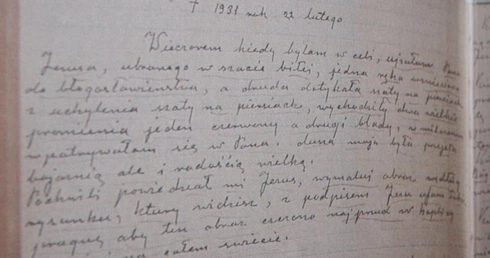 † 1931 rok 22 lutego
Wieczorem kiedy byłam w celi, ujrzałam Pana
Jezusa, ubranego w szacie białej, jedna ręka wzniesiona
do błogosławieństwa, a druga dotykała szaty na piersiach,
z uchylenia szaty na piersiach, wychodziły dwa wielkie
promienia jeden czerwony a drugi blady, w milczeniu
wpatrywałam się w Pana. dusza moja była przejęta
bojaźnią ale i radością wielką.
Po chwili powiedział mi Jezus, wymaluj obraz według
rysunku, który widzisz, z podpisem Jezu ufam Tobie
pragnę aby ten obraz czczono najprzód w kaplicy
na całem świecie.